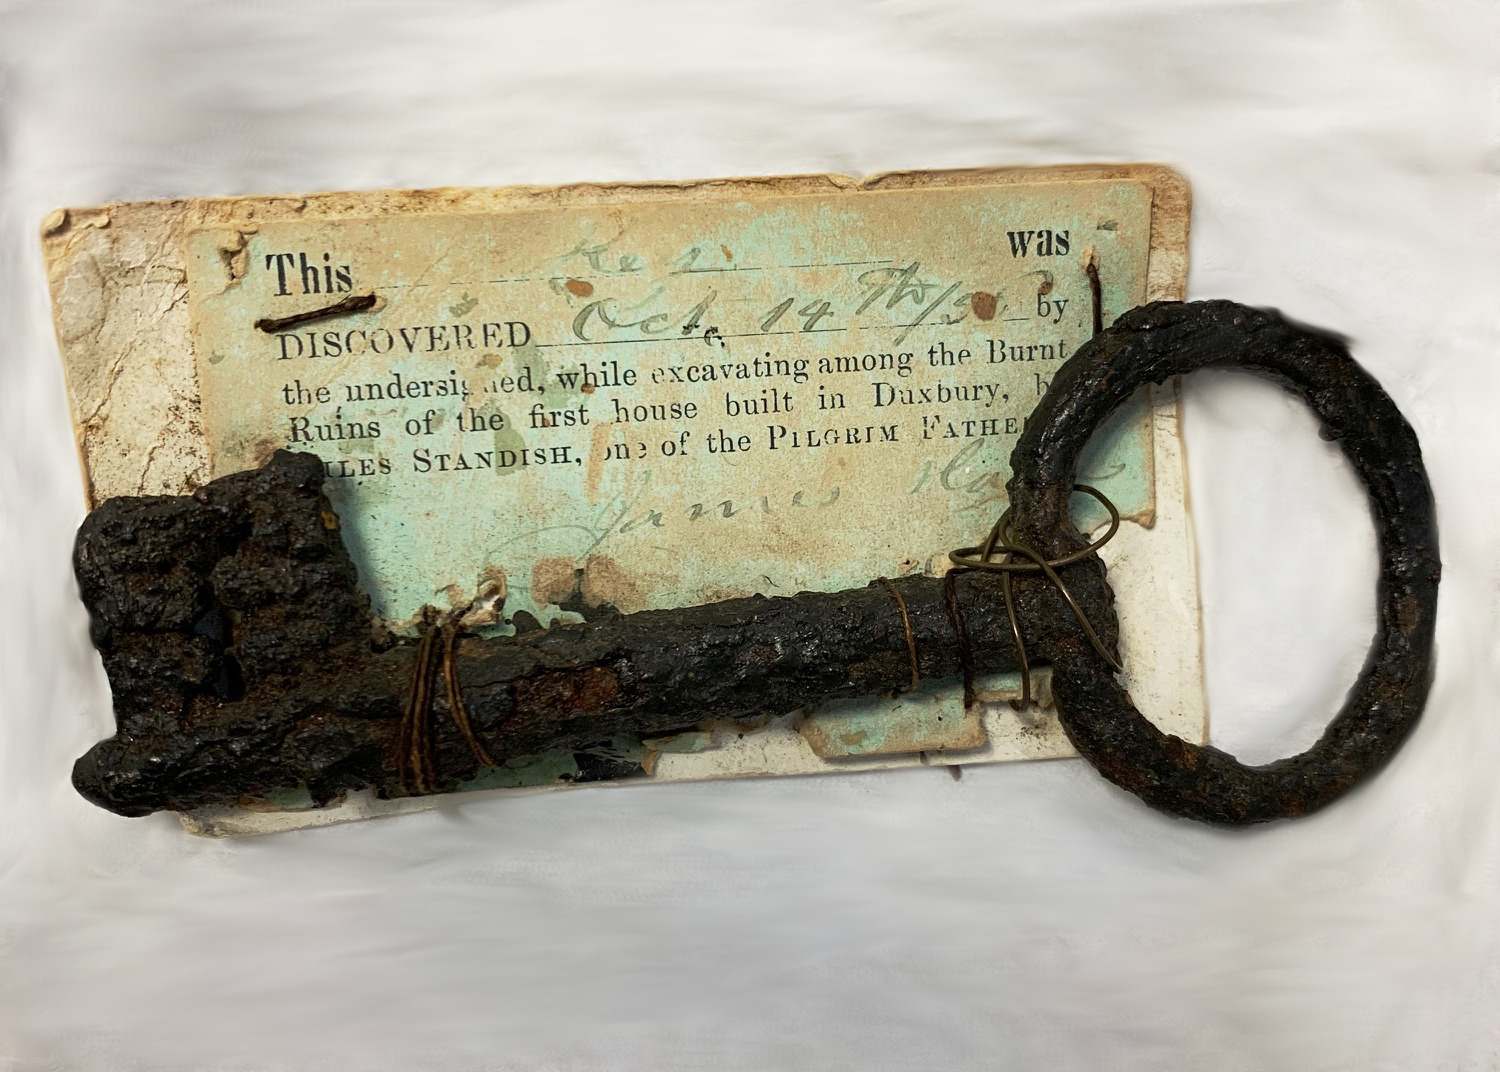 This Key was
DISCOVERED Oct. 14th by
the undersigned, while excavating among the Burnt
Ruins of the first house built in Duxbury,
MILES STANDISH, one of the PILGRIM FATHE
James